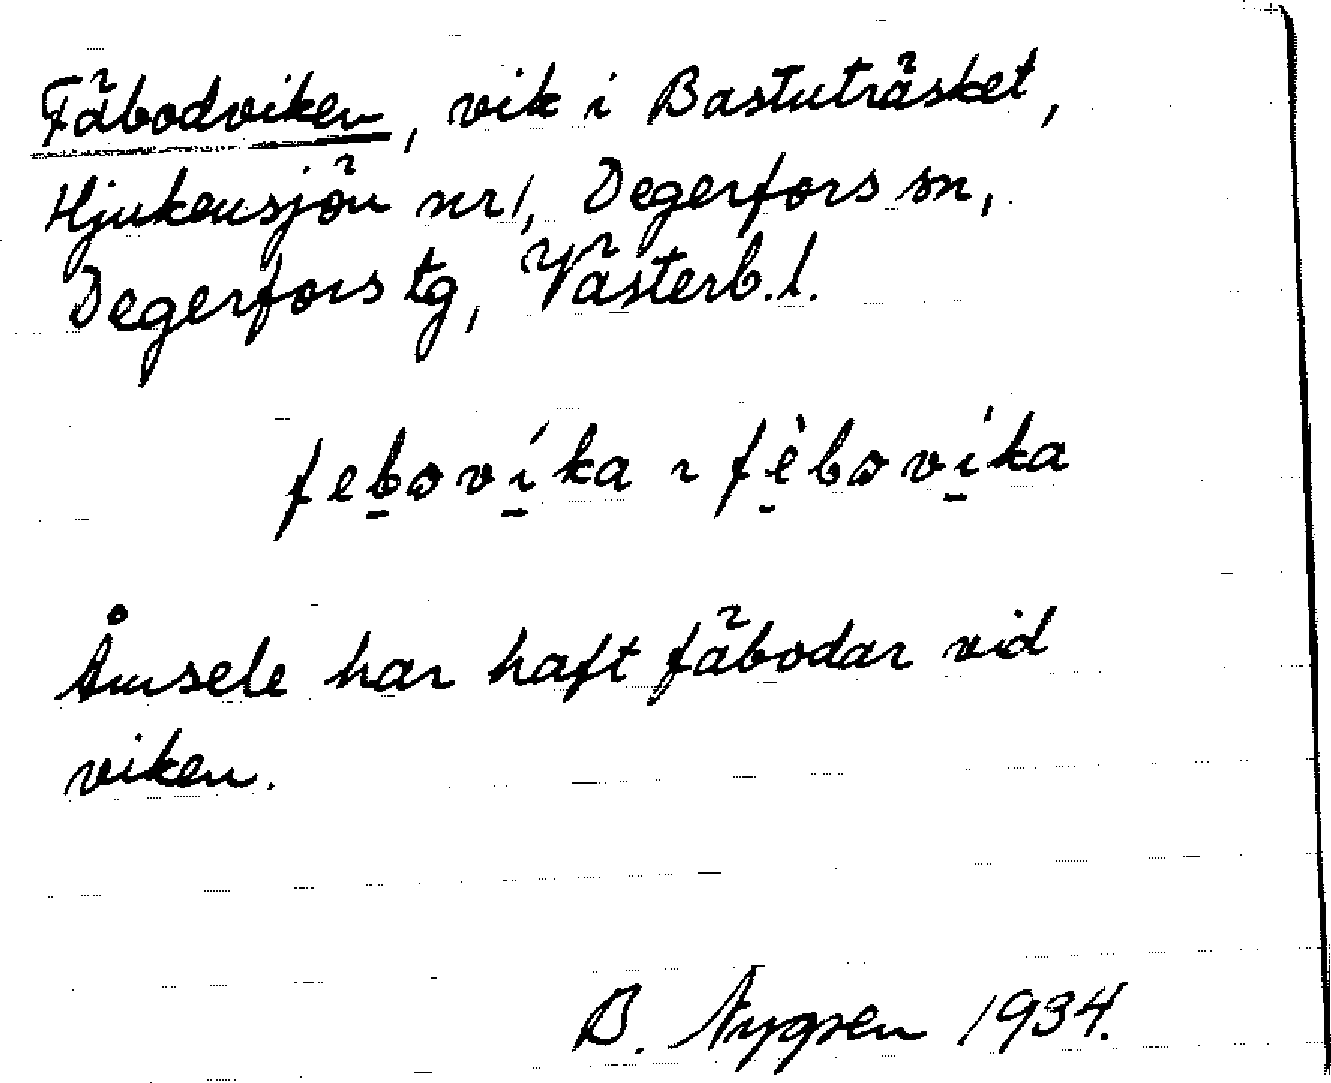 Fäbodviken, vik i Bastuträsket,
Hjukensjön nr 1, Degerfors sn,
Degerfors tg, Västerb. l.
febovíka ~ fèbovíka
Åmsele har haft fäbodar vid
viken.
B. Nygren 1934.